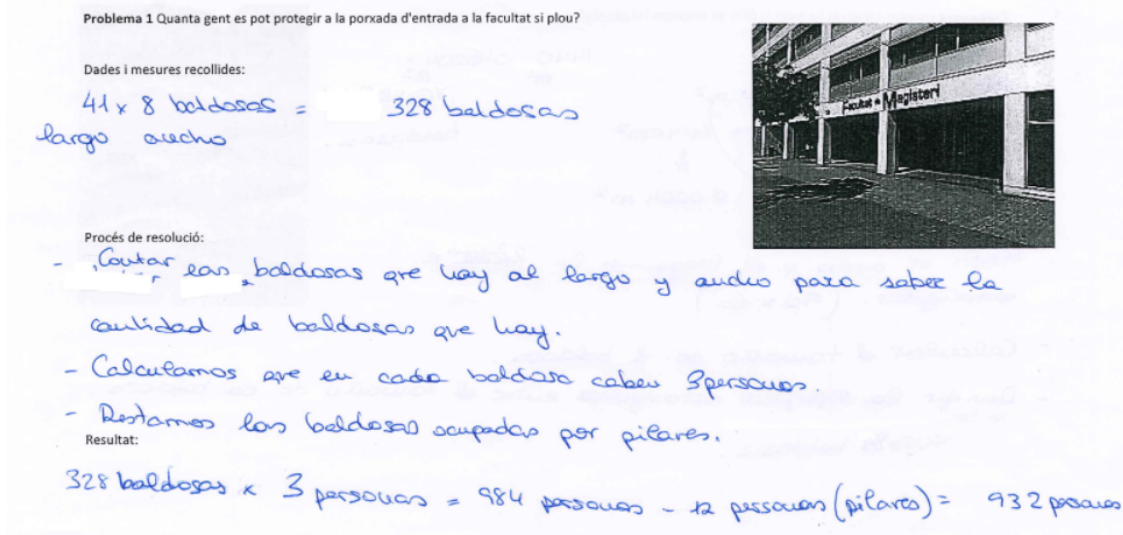 Problema 1 Quanta gent es pot protegir a la porxada d'entrada a la facultat si plou?
Facultat de Magisteri
Dades i mesures recollides:
41 x 8 baldosas = 328 baldosas
largo ancho
Procés de resolució:
- Contar las baldosas que hay al largo y ancho para saber la
cantidad de baldosas que hay.
- Calculamos que en cada baldosa caben 3 personas.
- Restamos las baldosas ocupadas por pilares.
Resultat:
328 baldosas x 3 personas = 984 personas - 12 personas (pilares) = 932 personas